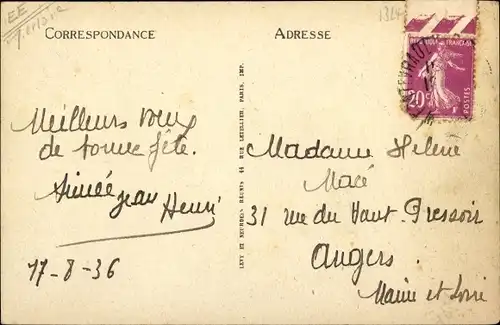 EE
CORRESPONDANCE
ADRESSE
REPUBLIQUE FRANÇAISE
20c
POSTES
Meilleurs vœux
de bonne fête.
Aimée Jean Henri
17-8-36
LEVY ET NEURDEIN REUNIS 44 RUE LETELLIER, PARIS, IMP.
Madame Hélène
Macé
31 rue du Haut-Pressoir
Angers
Maine et Loire